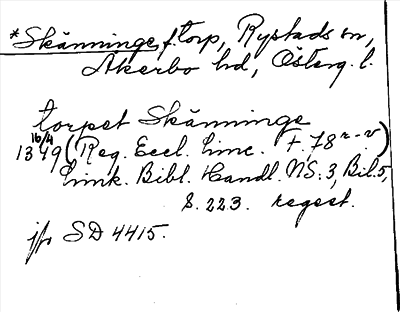 *Skänninge, f. torp, Rystads sn,
Åkerbo hd, Österg. l.
torpet Skänninge
16/4
1349 (Reg. Eccl. Linc. f. 78 r.-v)
Link. Bibl. Handl. NS: 3, Bil. 5,
s. 223. regest.
jfr SD 4415.